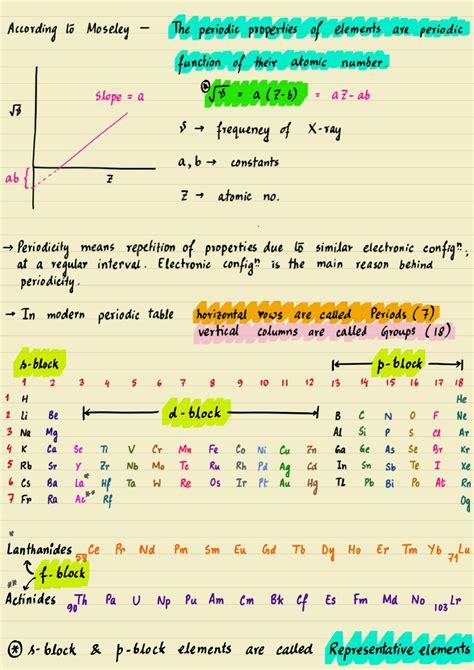 According to Moseley — The periodic properties of elements are periodic
function of their atomic number
* √ν = a (Z-b) = aZ-ab
slope = a
√ν
ν → frequency of X-ray
a, b → constants
ab { Z
Z → atomic no.
→ Periodicity means repetition of properties due to similar electronic configⁿ,
at a regular interval. Electronic configⁿ is the main reason behind
periodicity.
→ In modern periodic table horizontal rows are called Periods (7)
vertical columns are called Groups (18)
s-block p-block
1 2 3 4 5 6 7 8 9 10 11 12 13 14 15 16 17 18
1 H He
2 Li Be d-block B C N O F Ne
3 Na Mg Al Si P S Cl Ar
4 K Ca Sc Ti V Cr Mn Fe Co Ni Cu Zn Ga Ge As Se Br Kr
5 Rb Sr Y Zr Nb Mo Tc Ru Rh Pd Ag Cd In Sn Sb Te I Xe
6 Cs Ba La* Hf Ta W Re Os Ir Pt Au Hg Tl Pb Bi Po At Rn
7 Fr Ra Ac** Rf Og
*
Lanthanides 58Ce Pr Nd Pm Sm Eu Gd Tb Dy Ho Er Tm Yb 71Lu
** f-block
Actinides 90Th Pa U Np Pu Am Cm Bk Cf Es Fm Md No 103Lr
* s-block & p-block elements are called Representative elements